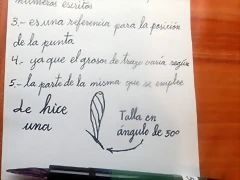 números escritos
3.- es una referencia para la posición
de la punta
4.- ya que el grosor de trazo varía según
5.- la parte de la misma que se emplee
Le hice
una
Talla en
ángulo de 50º